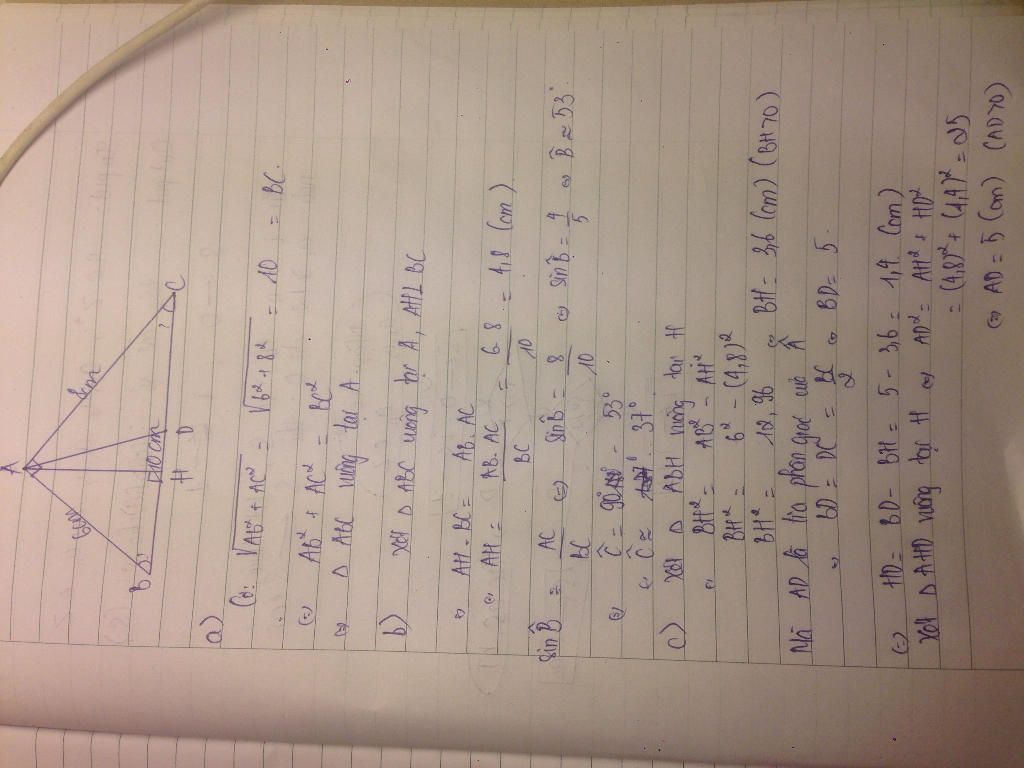 A
6cm
8cm
B
?
C
10 cm
H D
a)
Có: √AB² + AC² = √6² + 8² = 10 = BC.
⇔ AB² + AC² = BC²
⇔ Δ ABC vuông tại A
b) Xét Δ ABC vuông tại A, AH⊥BC
⇔ AH · BC = AB. AC
⇔ AH = AB. AC / BC = 6. 8 / 10 = 4,8 (cm)
sin B̂ = AC / BC ⇔ sin B̂ = 8 / 10 ⇔ sin B̂ = 4/5 ⇔ B̂ ≈ 53°.
⇔ Ĉ = 90° - 53°
Ĉ ≈ 37°
c) Xét Δ ABH vuông tại H
BH² = AB² - AH²
BH² = 6² - (4,8)²
BH² = 12,96 ⇔ BH = 3,6 (cm) (BH>0)
Mà AD là tia phân giác của Â
⇔ BD = DC = BC / 2 ⇔ BD = 5.
⇔ HD = BD - BH = 5 - 3,6 = 1,4 (cm)
Xét Δ AHD vuông tại H ⇔ AD² = AH² + HD²
= (4,8)² + (1,4)² = 25
⇔ AD = 5 (cm) (AD>0)